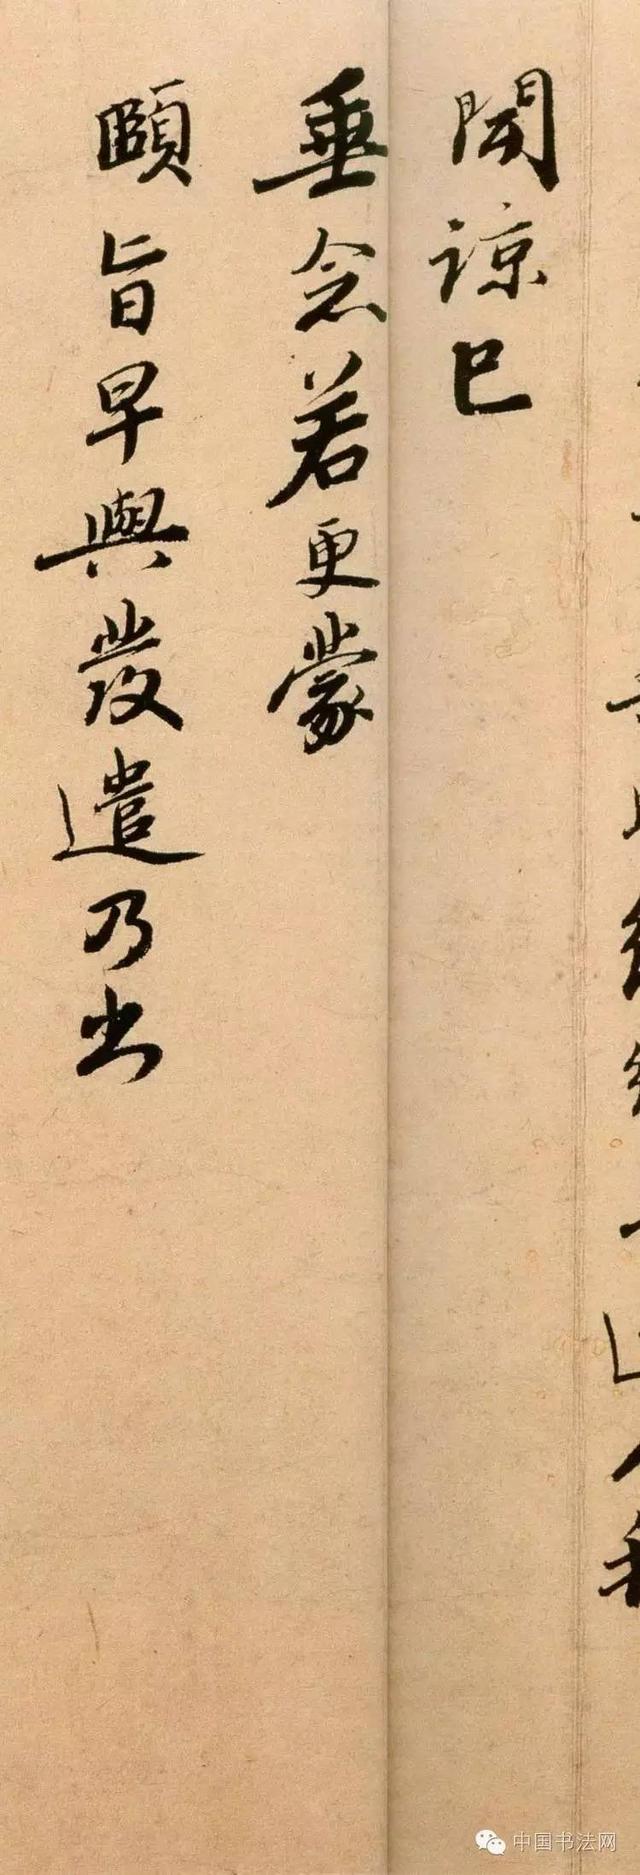 聞諒已
垂念若更蒙
頤旨早與發遣乃出
中国书法网